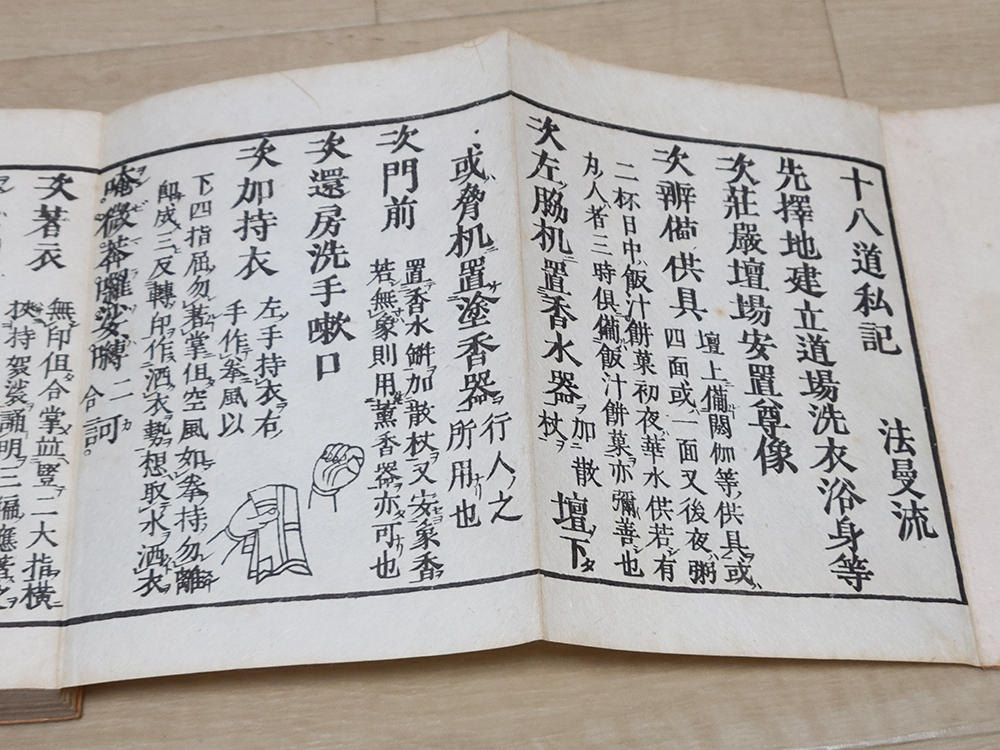 十八道私記 法曼流
先擇地建立道場洗衣浴身等
次莊嚴壇場安置尊像
次辨備供具 壇上備閼伽等供具或
四面或一面又後夜粥
二杯日中飯汁餅菓初夜華水供若有
力人者三時俱備飯汁餅菓亦彌善也
次左脇机置香水器加散杖 壇下
或脅机置塗香器 行人之所用也
次門前 置香水鉼加散杖又安象香
若無象則用薰香器亦可也
次還房洗手嗽口
次加持衣 左手持衣右
手作拳風以
下四指屈勿著掌但空風如拳持勿離
即成三反轉印作洒衣勢想取水洒衣
唵微莽羅娑嚩 二合 訶
次著衣 無印但合掌並豎二大指橫
挾持袈裟誦明三遍應著之